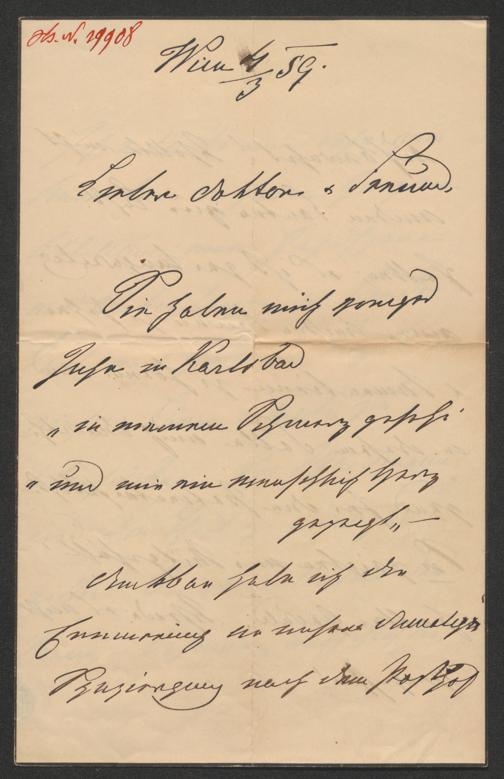 Wien 4/3 59.
Lieber Doktor & Freund,
Sie haben mich voriges
Jahr in Karlsbad
„in meinem Schmerz gesehn
„und mir ein menschlich Herz
gezeigt„ —
dankbar habe ich die
Erinnerung an unsere
nach dem Posthof